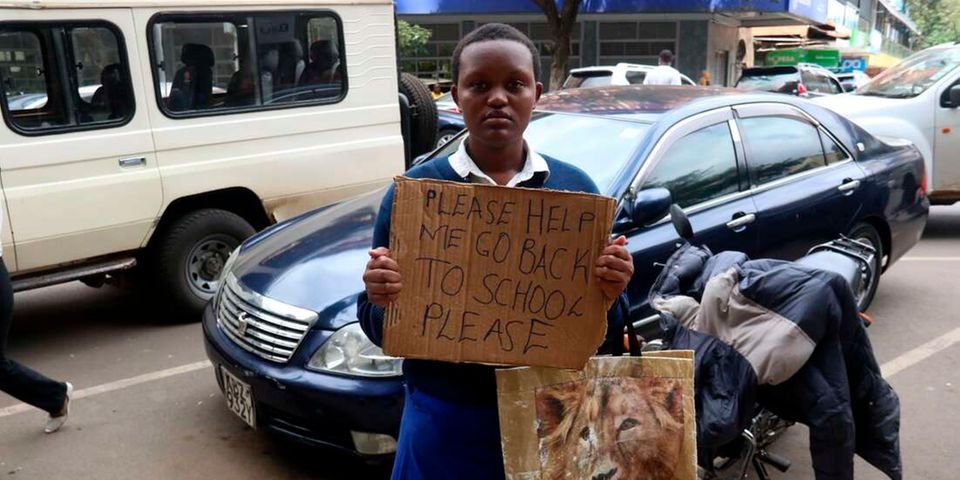 PLEASE HELP
ME GO BACK
TO SCHOOL
PLEASE